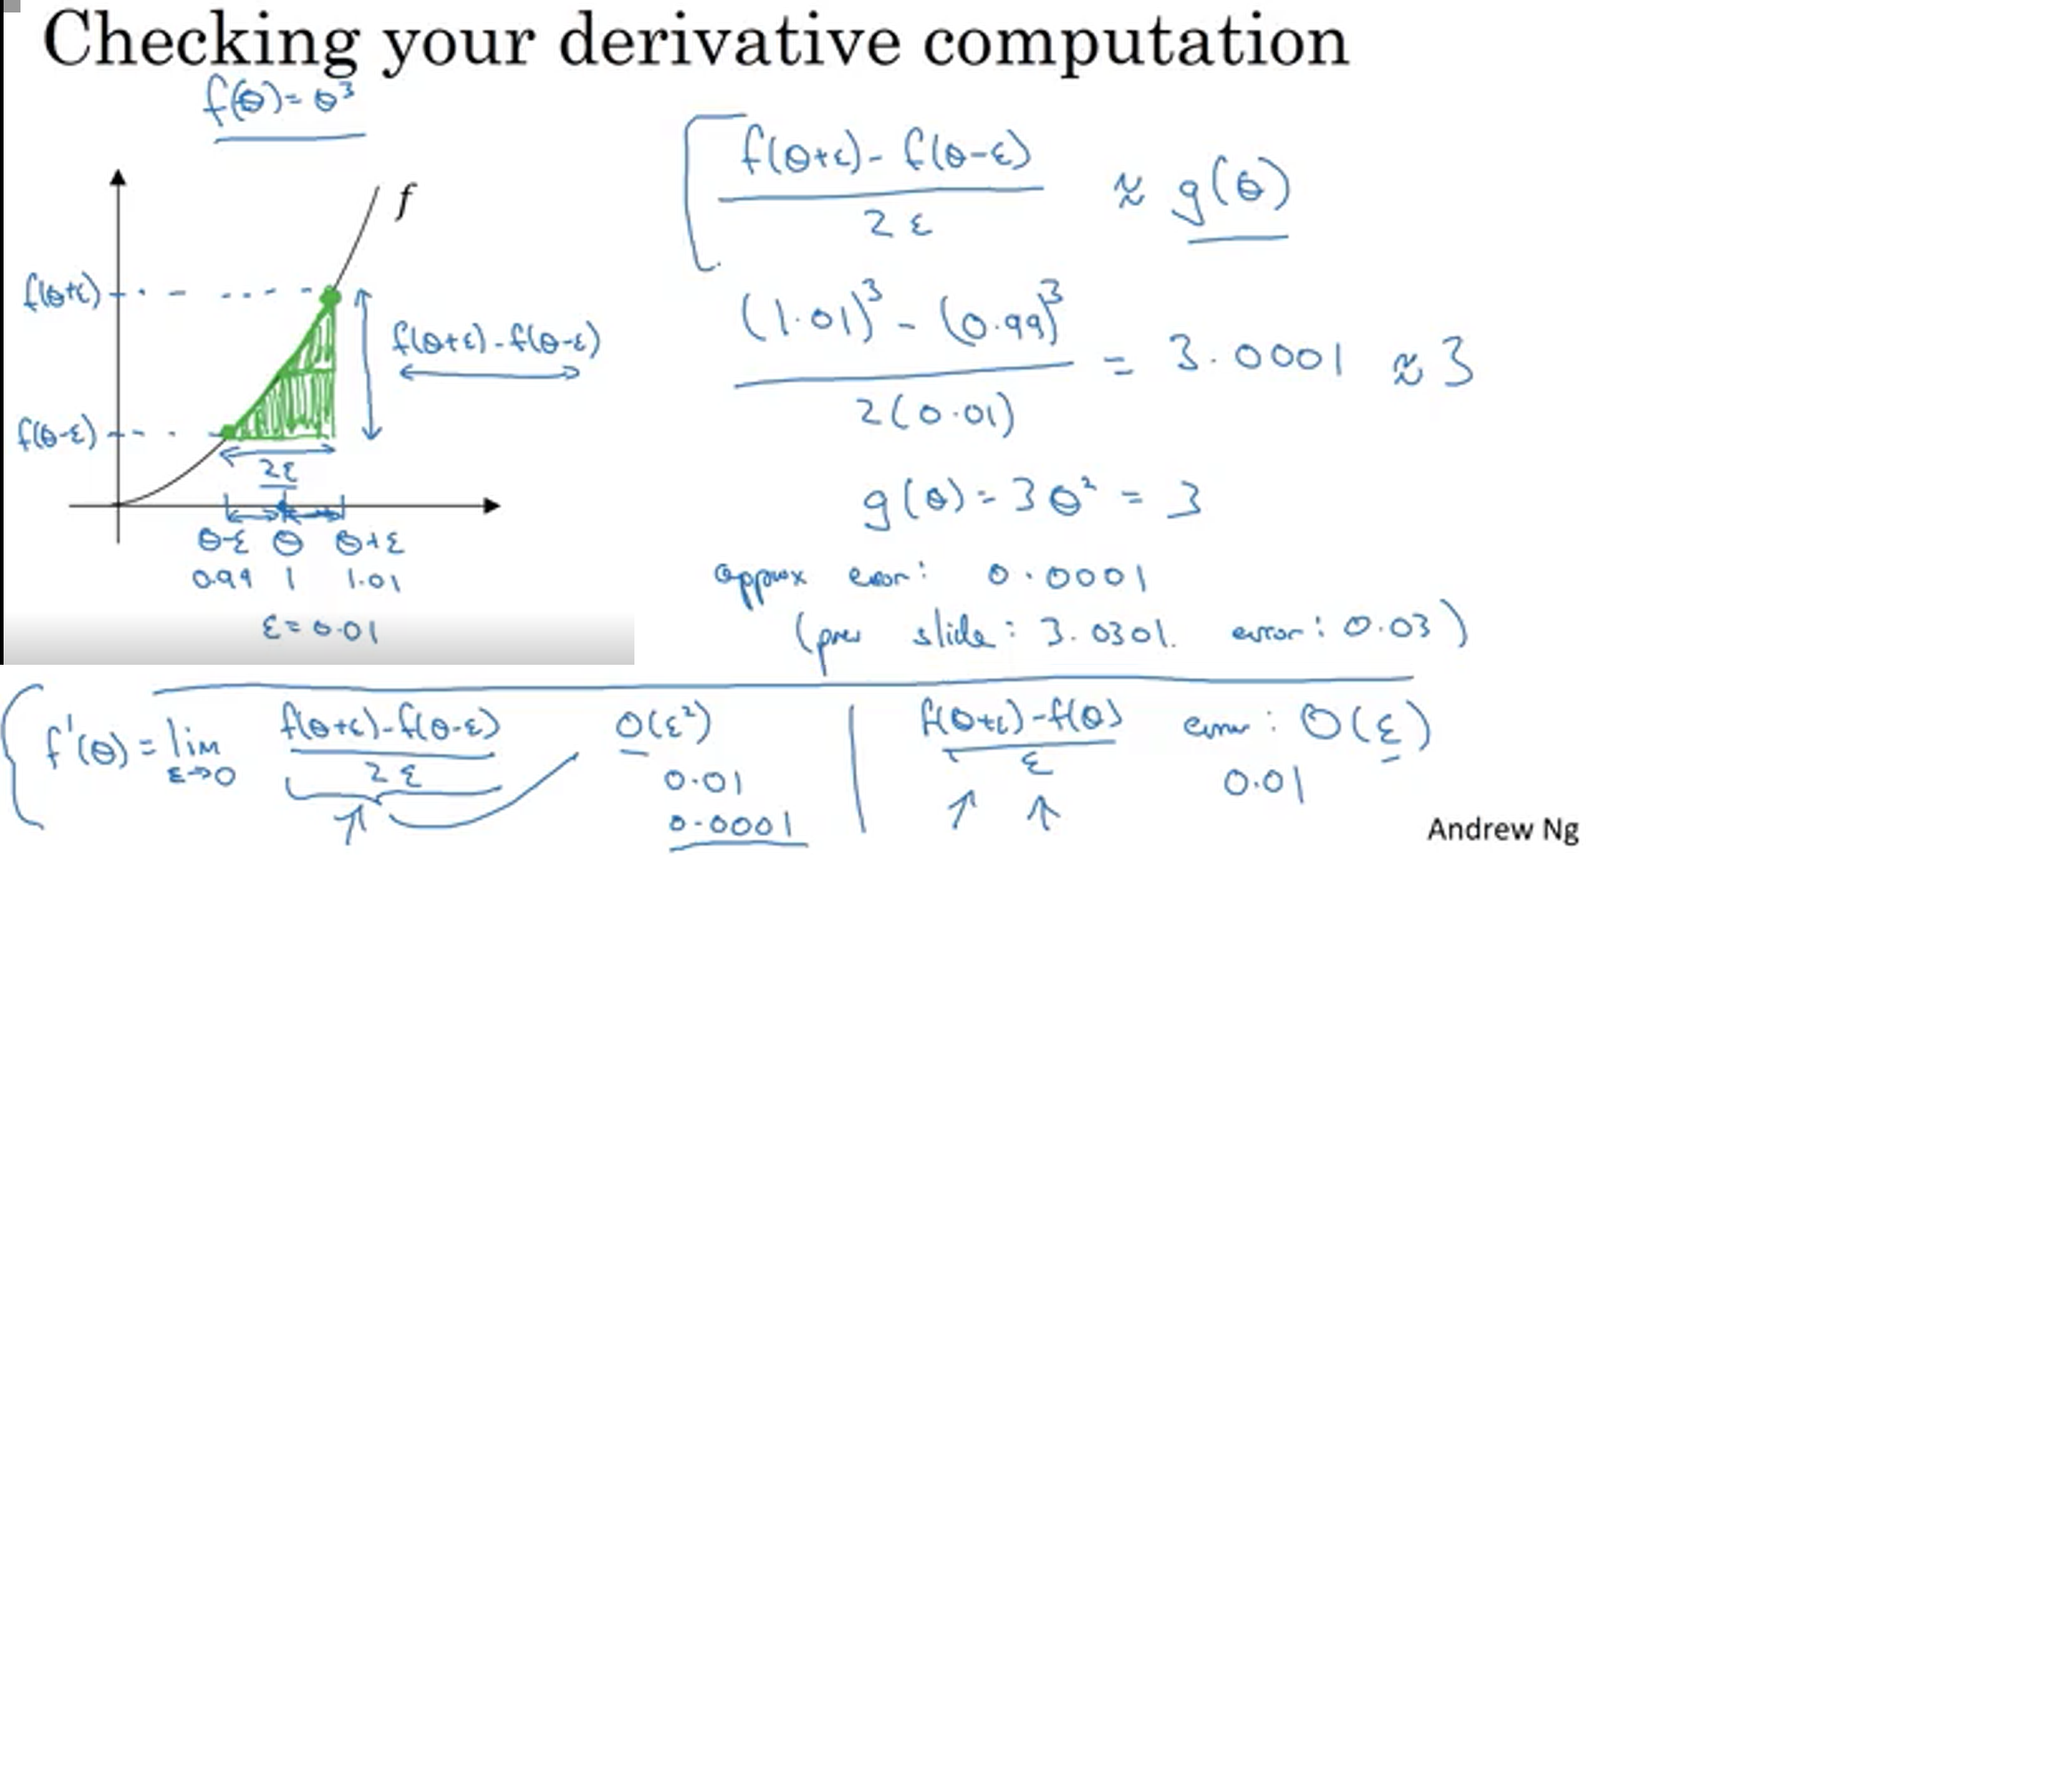 Checking your derivative computation
f(θ) = θ³
f
f(θ+ε)
f(θ+ε) - f(θ-ε)
f(θ-ε)
2ε
θ-ε θ θ+ε
0.99 1 1.01
ε = 0.01
f(θ+ε) - f(θ-ε)
2ε
≈ g(θ)
(1.01)³ - (0.99)³
2(0.01)
= 3.0001 ≈ 3
g(θ) = 3θ² = 3
approx error: 0.0001
(prev slide: 3.0301. error: 0.03)
f'(θ) = lim
ε→0
f(θ+ε) - f(θ-ε)
2ε
O(ε²)
0.01
0.0001
f(θ+ε) - f(θ)
ε
error: O(ε)
0.01
Andrew Ng